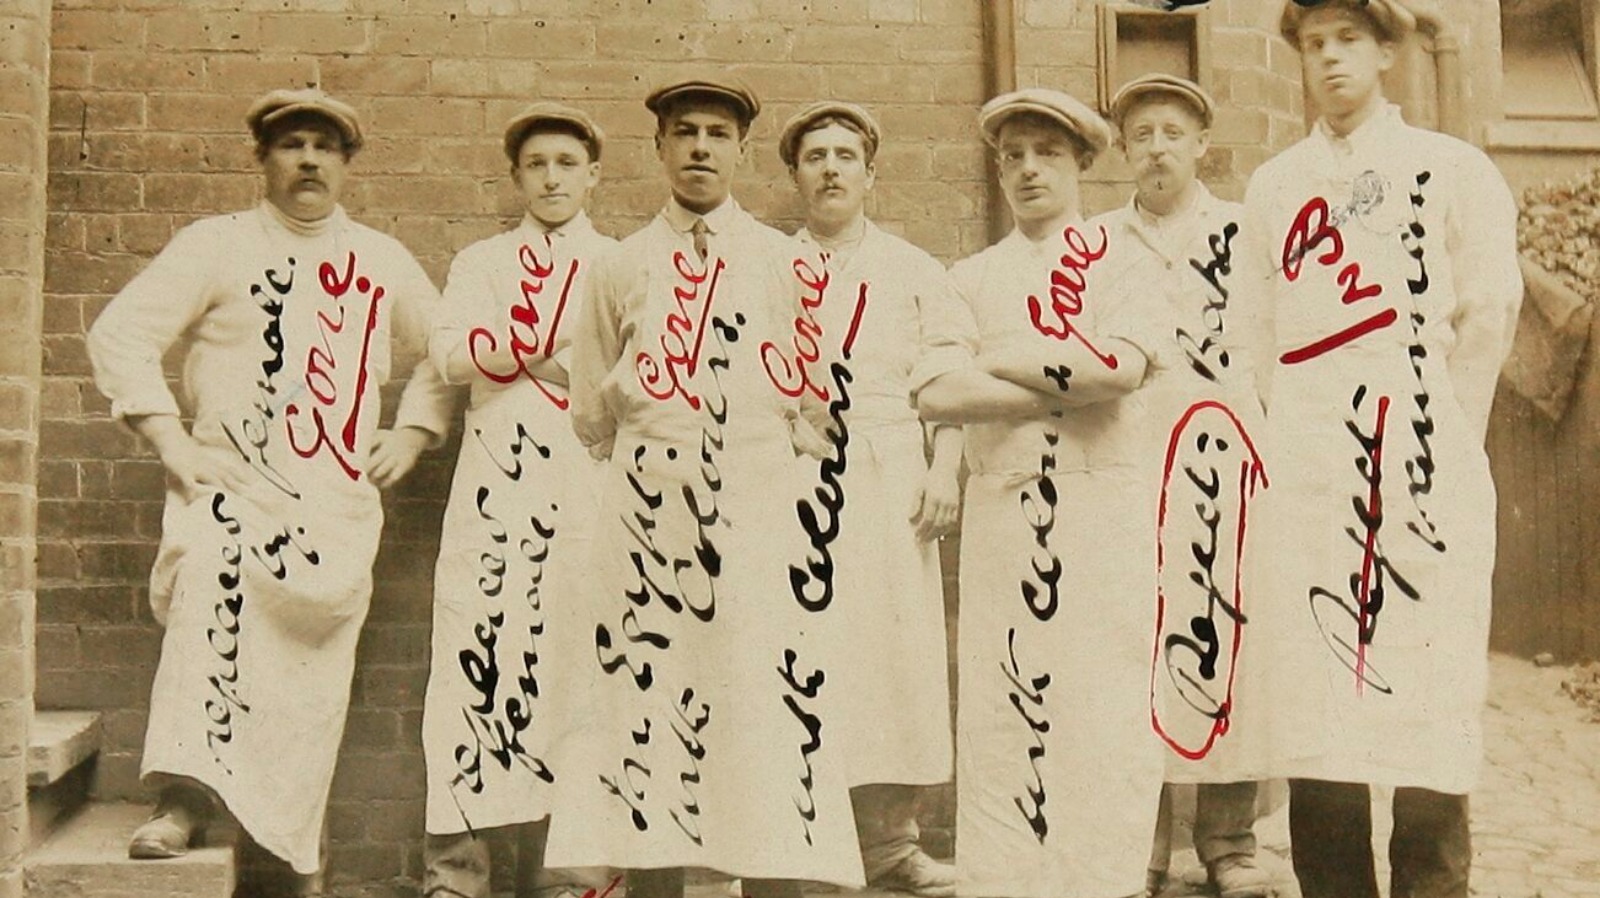 replaced
by female.
Gone.
replaced by
female.
Gone.
In Egypt:
with Colours.
Gone
with Colours
Gone.
with Colours
Gone
Reject:
Baker
Reject:
B 2